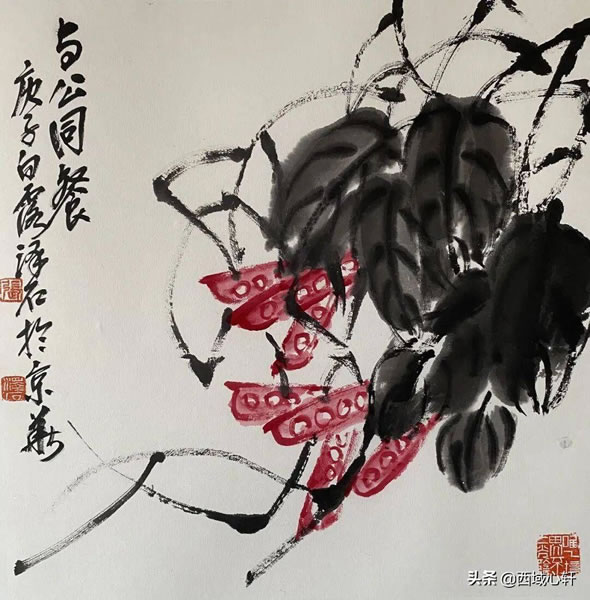 与公同餐
庚子白露泽石於京華
張
头条 @西域心轩